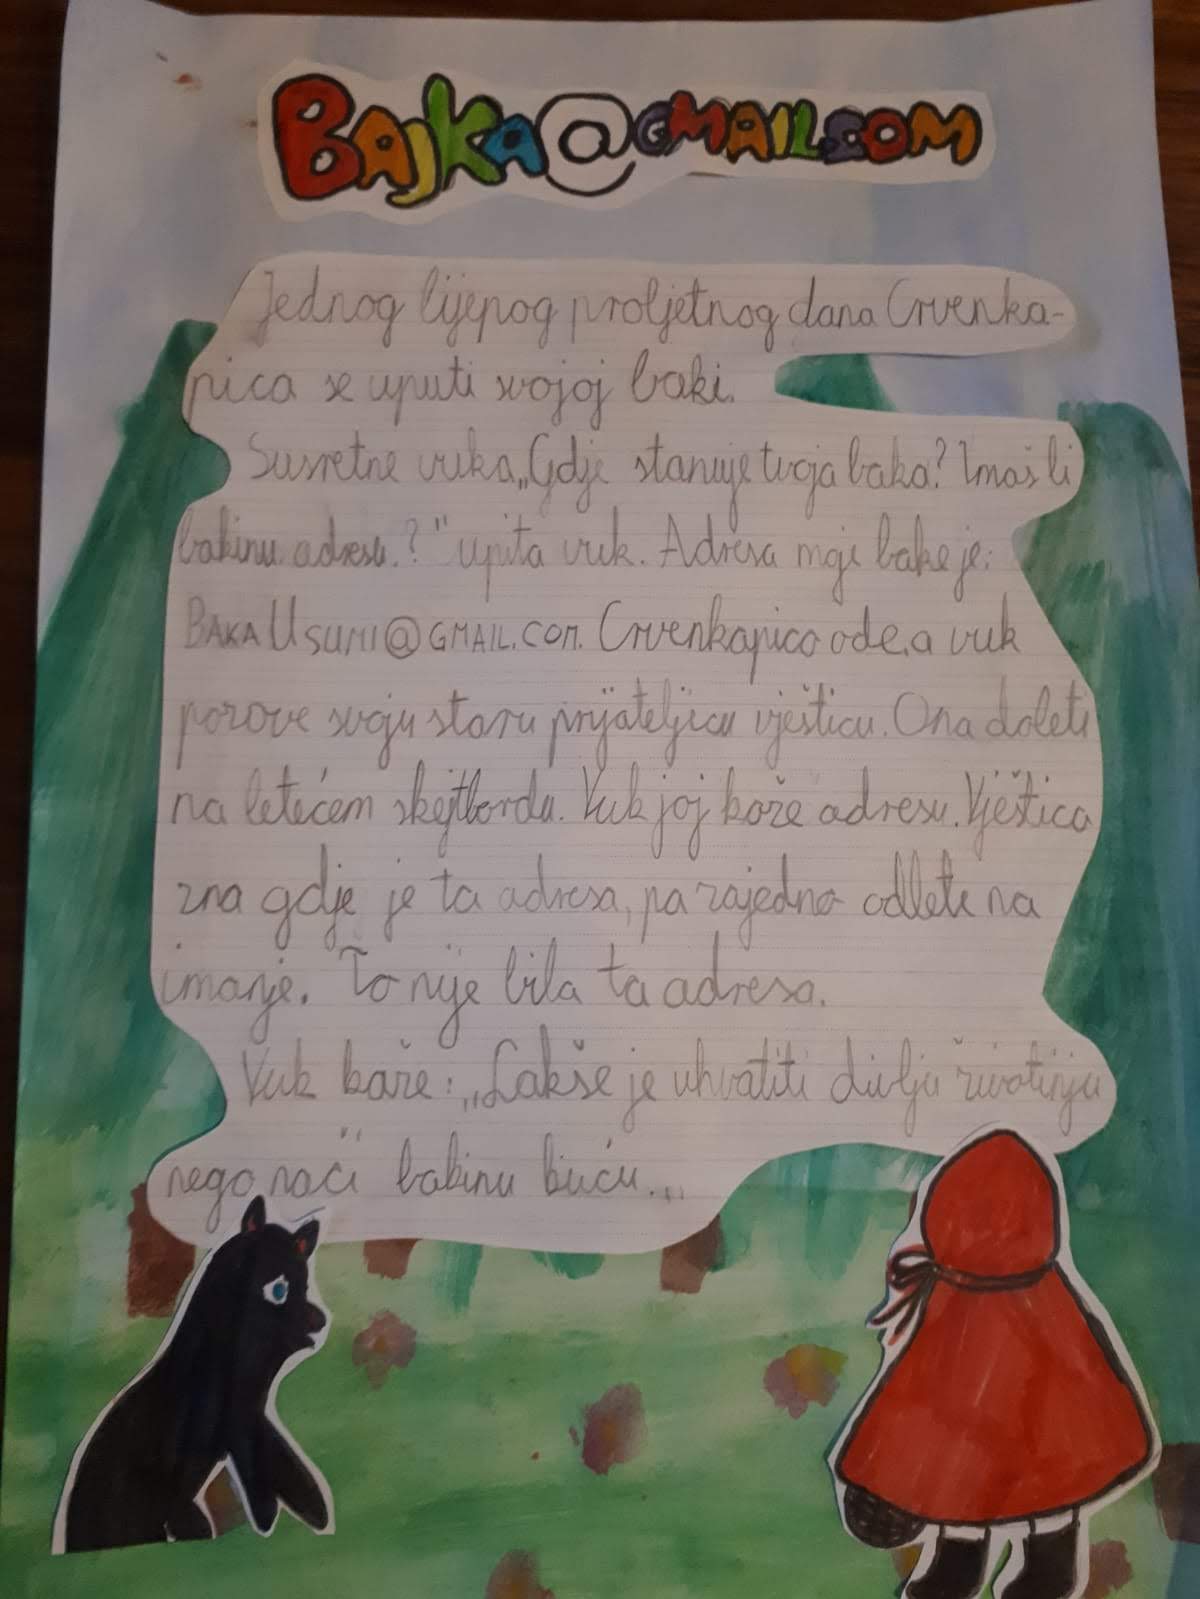 BAJKA@GMAIL.COM
Jednog lijepog proljetnog dana Crvenka-
pica se uputi svojoj baki.
Susretne vuka „Gdje stanuje tvoja baka? Imaš li
bakinu adresu.?" upita vuk. Adresa moje bake je:
BAKA USUMI@GMAIL.COM. Crvenkapica ode, a vuk
pozove svoju staru prijateljicu vješticu. Ona doleti
na letećem skejtbordu. Vuk joj kaže adresu. Vještica
zna gdje je ta adresa, pa zajedno odlete na
imanje. To nije bila ta adresa.
Vuk kaže: „Lakše je uhvatiti divlju životinju
nego naći bakinu kuću.„